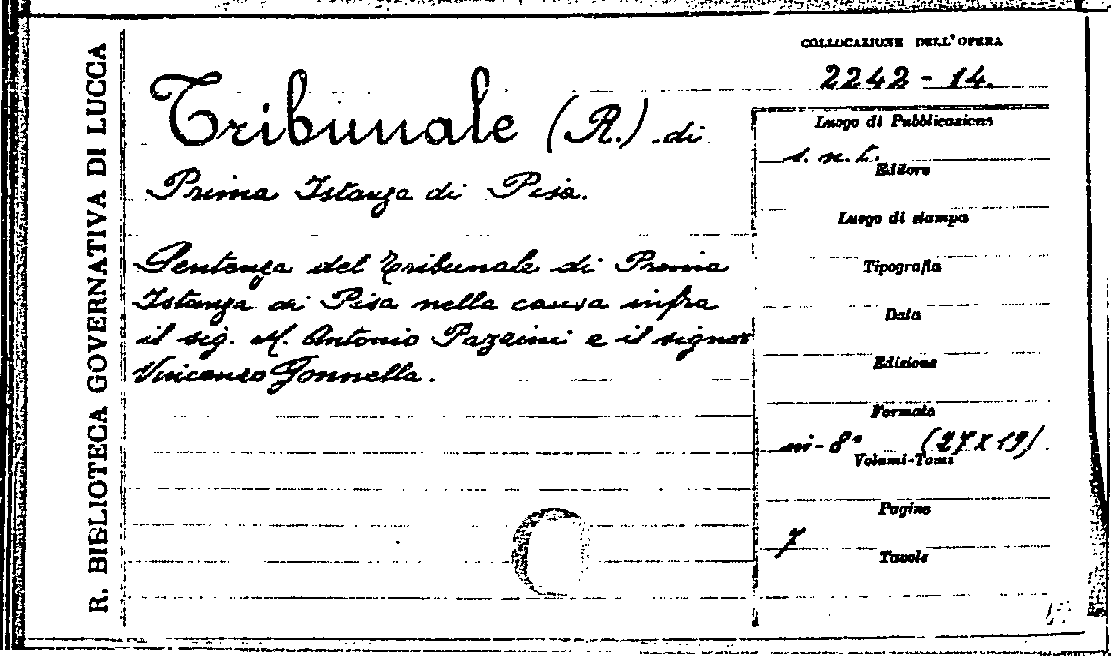 R. BIBLIOTECA GOVERNATIVA DI LUCCA
COLLOCAZIONE DELL'OPERA
2242 - 14.
Tribunale (R.) di
Prima Istanza di Pisa.
Sentenza del Tribunale di Prima
Istanza di Pisa nella causa infra
il sig. M. Antonio Pazzini e il signor
Vincenzo Gonnella.
Luogo di Pubblicazione
s. n. t.
Editore
Luogo di stampa
Tipografia
Data
Edizione
Formato
in-8° (27 x 19)
Volumi-Tomi
Pagine
7
Tavole